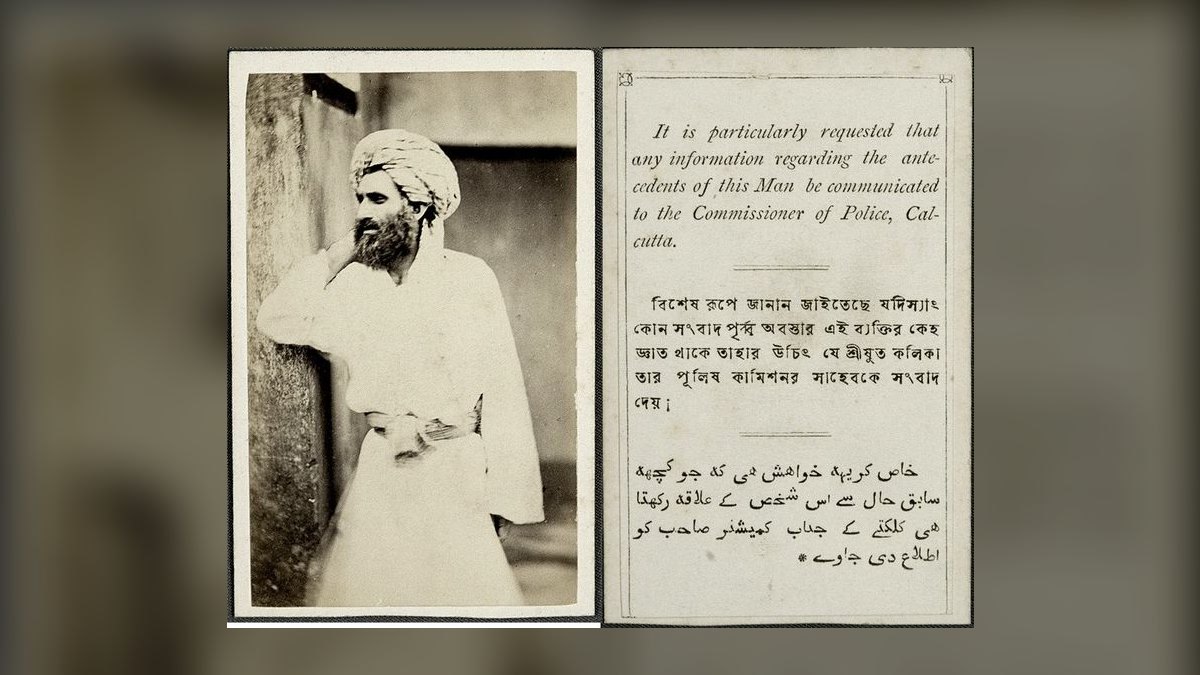 It is particularly requested that
any information regarding the ante-
cedents of this Man be communicated
to the Commissioner of Police, Cal-
cutta.
বিশেষ রূপে জানান জাইতেছে যদিস্যাৎ
কোন সংবাদ পূর্ব্ব অবস্তার এই ব্যক্তির কেহ
জ্ঞাত থাকে তাহার উচিৎ যে শ্রীযুত কলিকা
তার পূলিষ কামিশনর সাহেবকে সংবাদ
দেয়।
خاص کر یہہ خواهش هی که جو کچهه
سابق حال سے اس شخص کے علاقه رکهتا
هی کلکتے کے جناب کمیشنر صاحب کو
اطلاع دی جاوے *